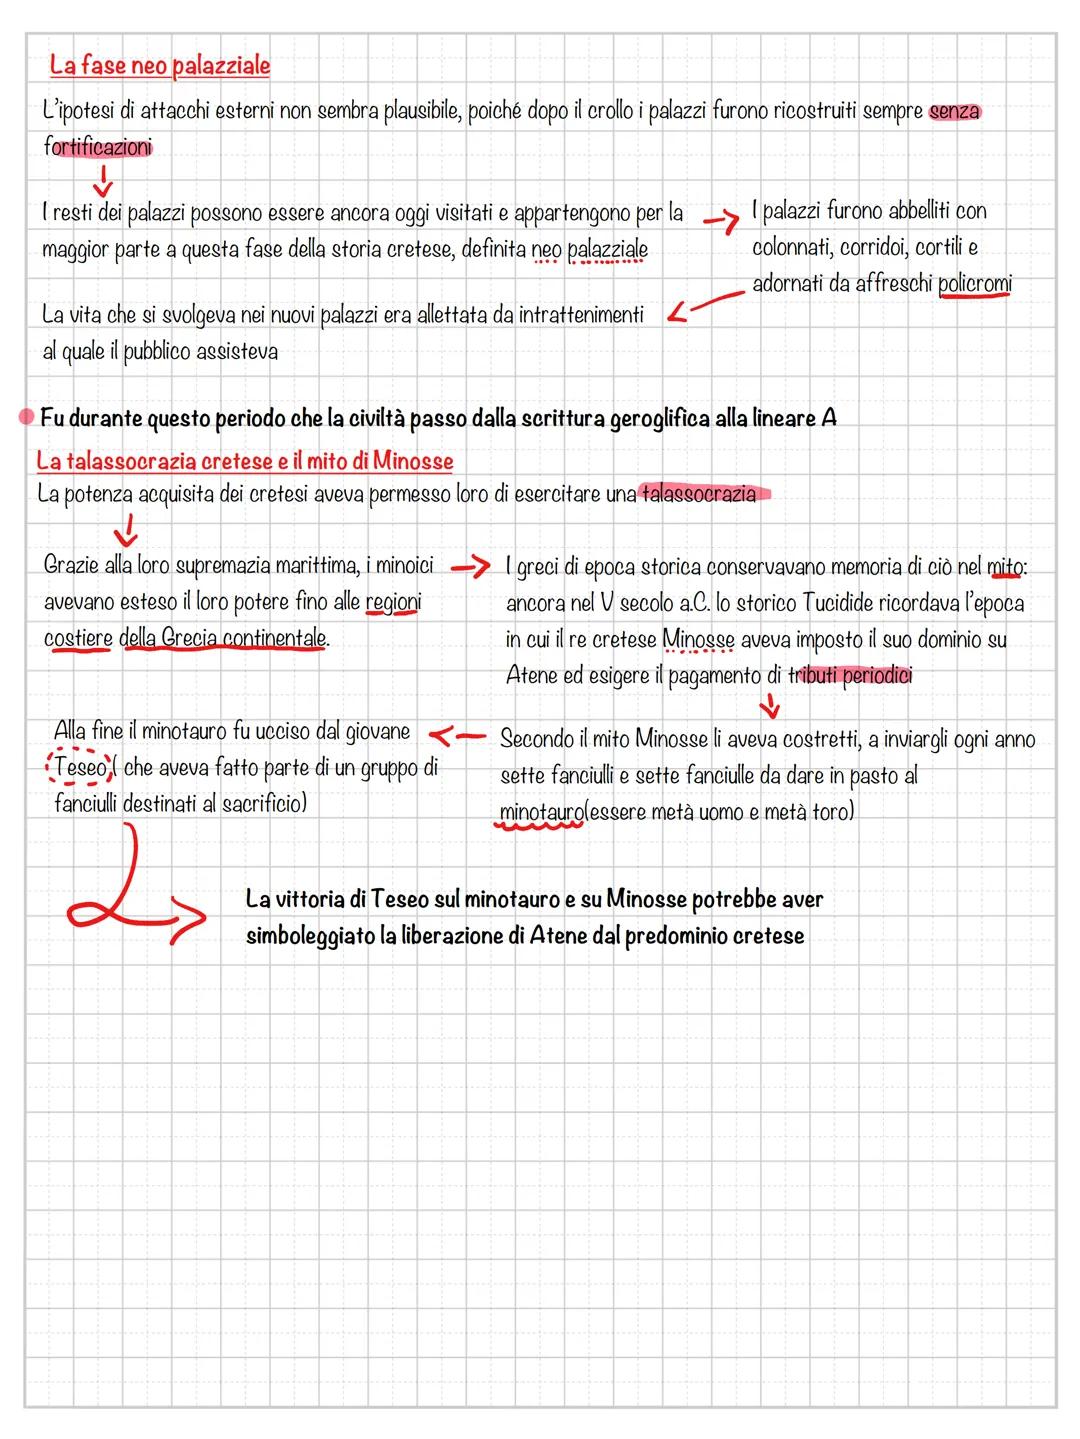 La fase neo palazziale
L'ipotesi di attacchi esterni non sembra plausibile, poiché dopo il crollo i palazzi furono ricostruiti sempre senza
fortificazioni
I resti dei palazzi possono essere ancora oggi visitati e appartengono per la
maggior parte a questa fase della storia cretese, definita neo palazziale
I palazzi furono abbelliti con
colonnati, corridoi, cortili e
adornati da affreschi policromi
La vita che si svolgeva nei nuovi palazzi era allettata da intrattenimenti
al quale il pubblico assisteva
Fu durante questo periodo che la civiltà passo dalla scrittura geroglifica alla lineare A
La talassocrazia cretese e il mito di Minosse
La potenza acquisita dei cretesi aveva permesso loro di esercitare una talassocrazia
Grazie alla loro supremazia marittima, i minoici
avevano esteso il loro potere fino alle regioni
costiere della Grecia continentale.
I greci di epoca storica conservavano memoria di ciò nel mito:
ancora nel V secolo a.C. lo storico Tucidide ricordava l'epoca
in cui il re cretese Minosse aveva imposto il suo dominio su
Atene ed esigere il pagamento di tributi periodici
Secondo il mito Minosse li aveva costretti, a inviargli ogni anno
sette fanciulli e sette fanciulle da dare in pasto al
minotauro(essere metà uomo e metà toro)
Alla fine il minotauro fu ucciso dal giovane
Teseo,( che aveva fatto parte di un gruppo di
fanciulli destinati al sacrificio)
La vittoria di Teseo sul minotauro e su Minosse potrebbe aver
simboleggiato la liberazione di Atene dal predominio cretese